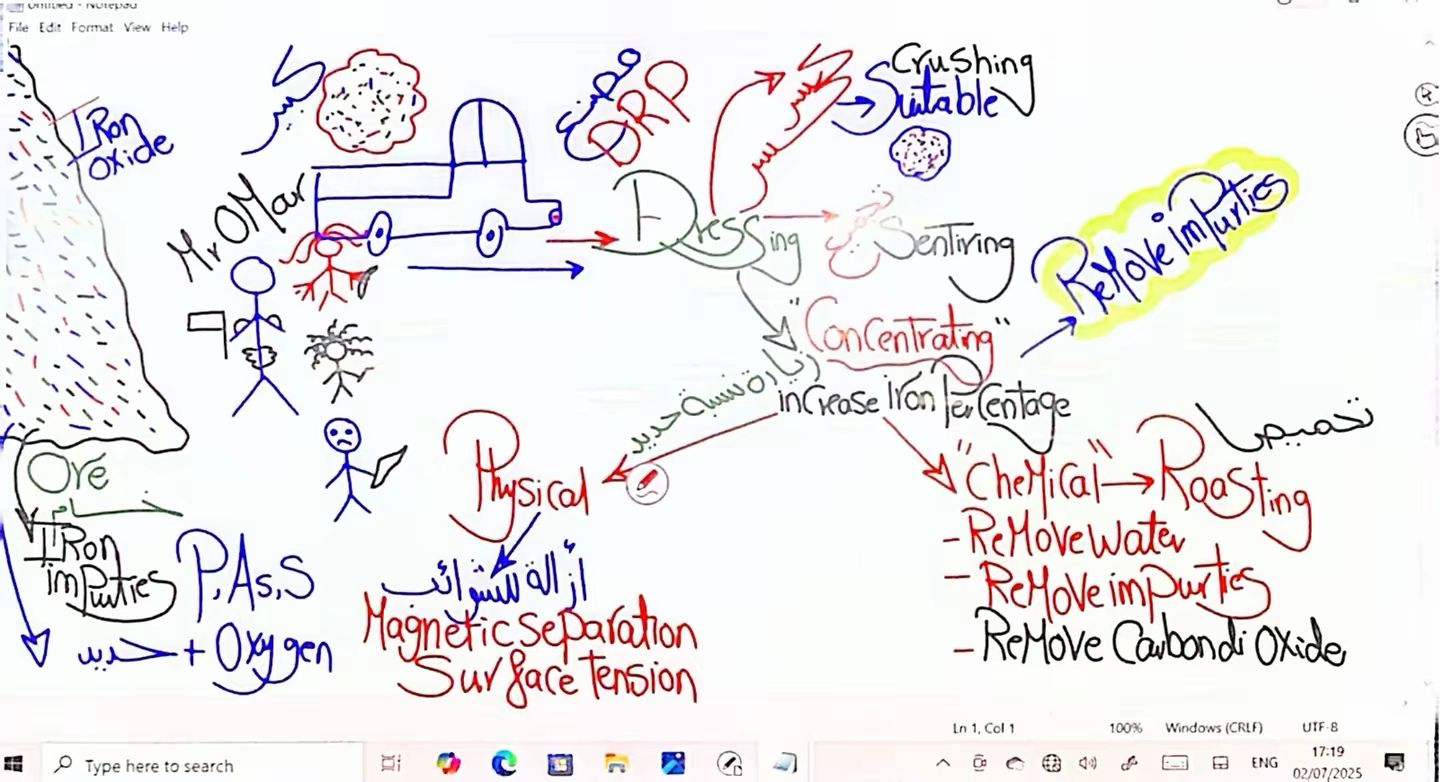 Untitled - Notepad
File Edit Format View Help
IRon
oxide
Mr OMar
DRP
Dressing
Crushing
Suitable
Sentiring
"Concentrating"
ReMove imPurties
زيادة نسبة حديد
increase iron Percentage
Physical
أزالة للشوائب
Magnetic separation
Surface tension
تحميص
"CheMical" → Roasting
- ReMove water
- ReMove impurties
- ReMove Carbondi oxide
Ore
خام
IRon
imPurties
P, As, S
حديد + Oxygen
Ln 1, Col 1 100% Windows (CRLF) UTF-8
Type here to search
ENG
17:19
02/07/2025